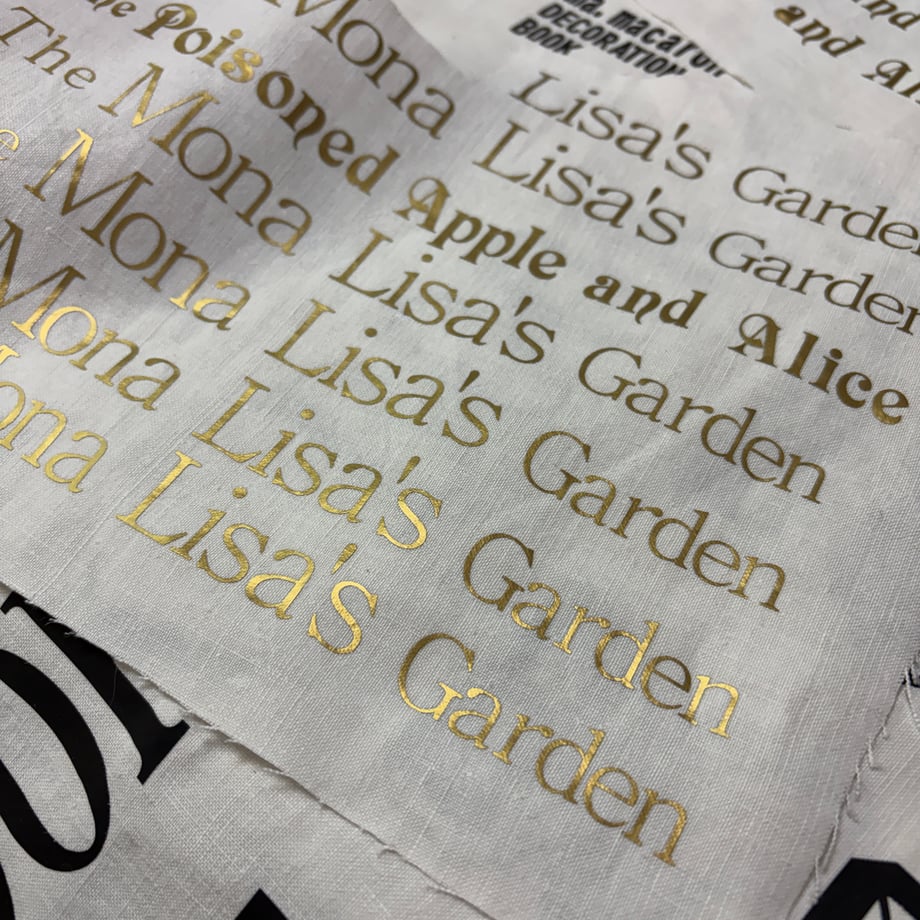 DECORATION
BOOK
and
Mona
Lisa's Garden
The Mona Lisa's Garden
Poisoned Apple and Alice
Mona Lisa's Garden
Mona Lisa's Garden
Mona Lisa's Garden
Lisa's Garden